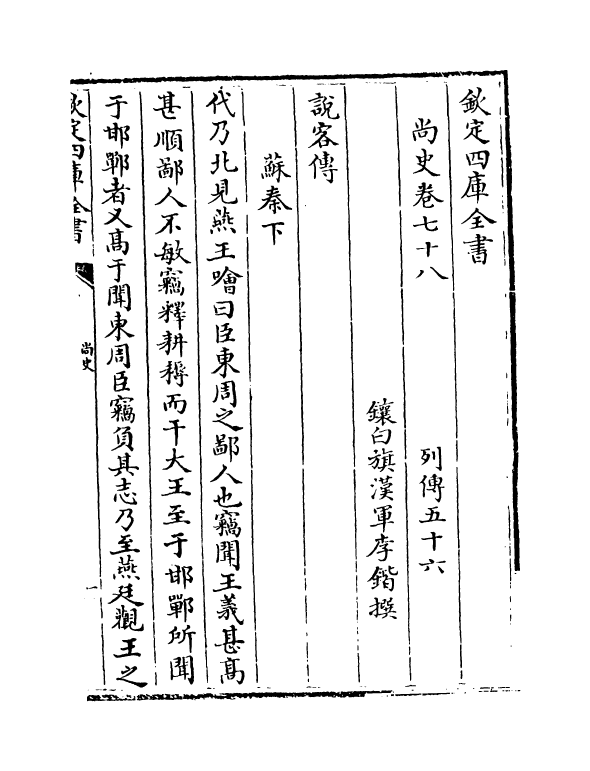 欽定四庫全書
尚史卷七十八　列傳五十六
鑲白旗漢軍李鍇撰
說客傳
蘇秦下
代乃北見燕王噲曰臣東周之鄙人也竊聞王義甚髙
甚順鄙人不敏竊釋耕耨而干大王至于邯鄲所聞
于邯鄲者又髙于聞東周臣竊負其志乃至燕廷觀王之
欽定四庫全書
尚史
一